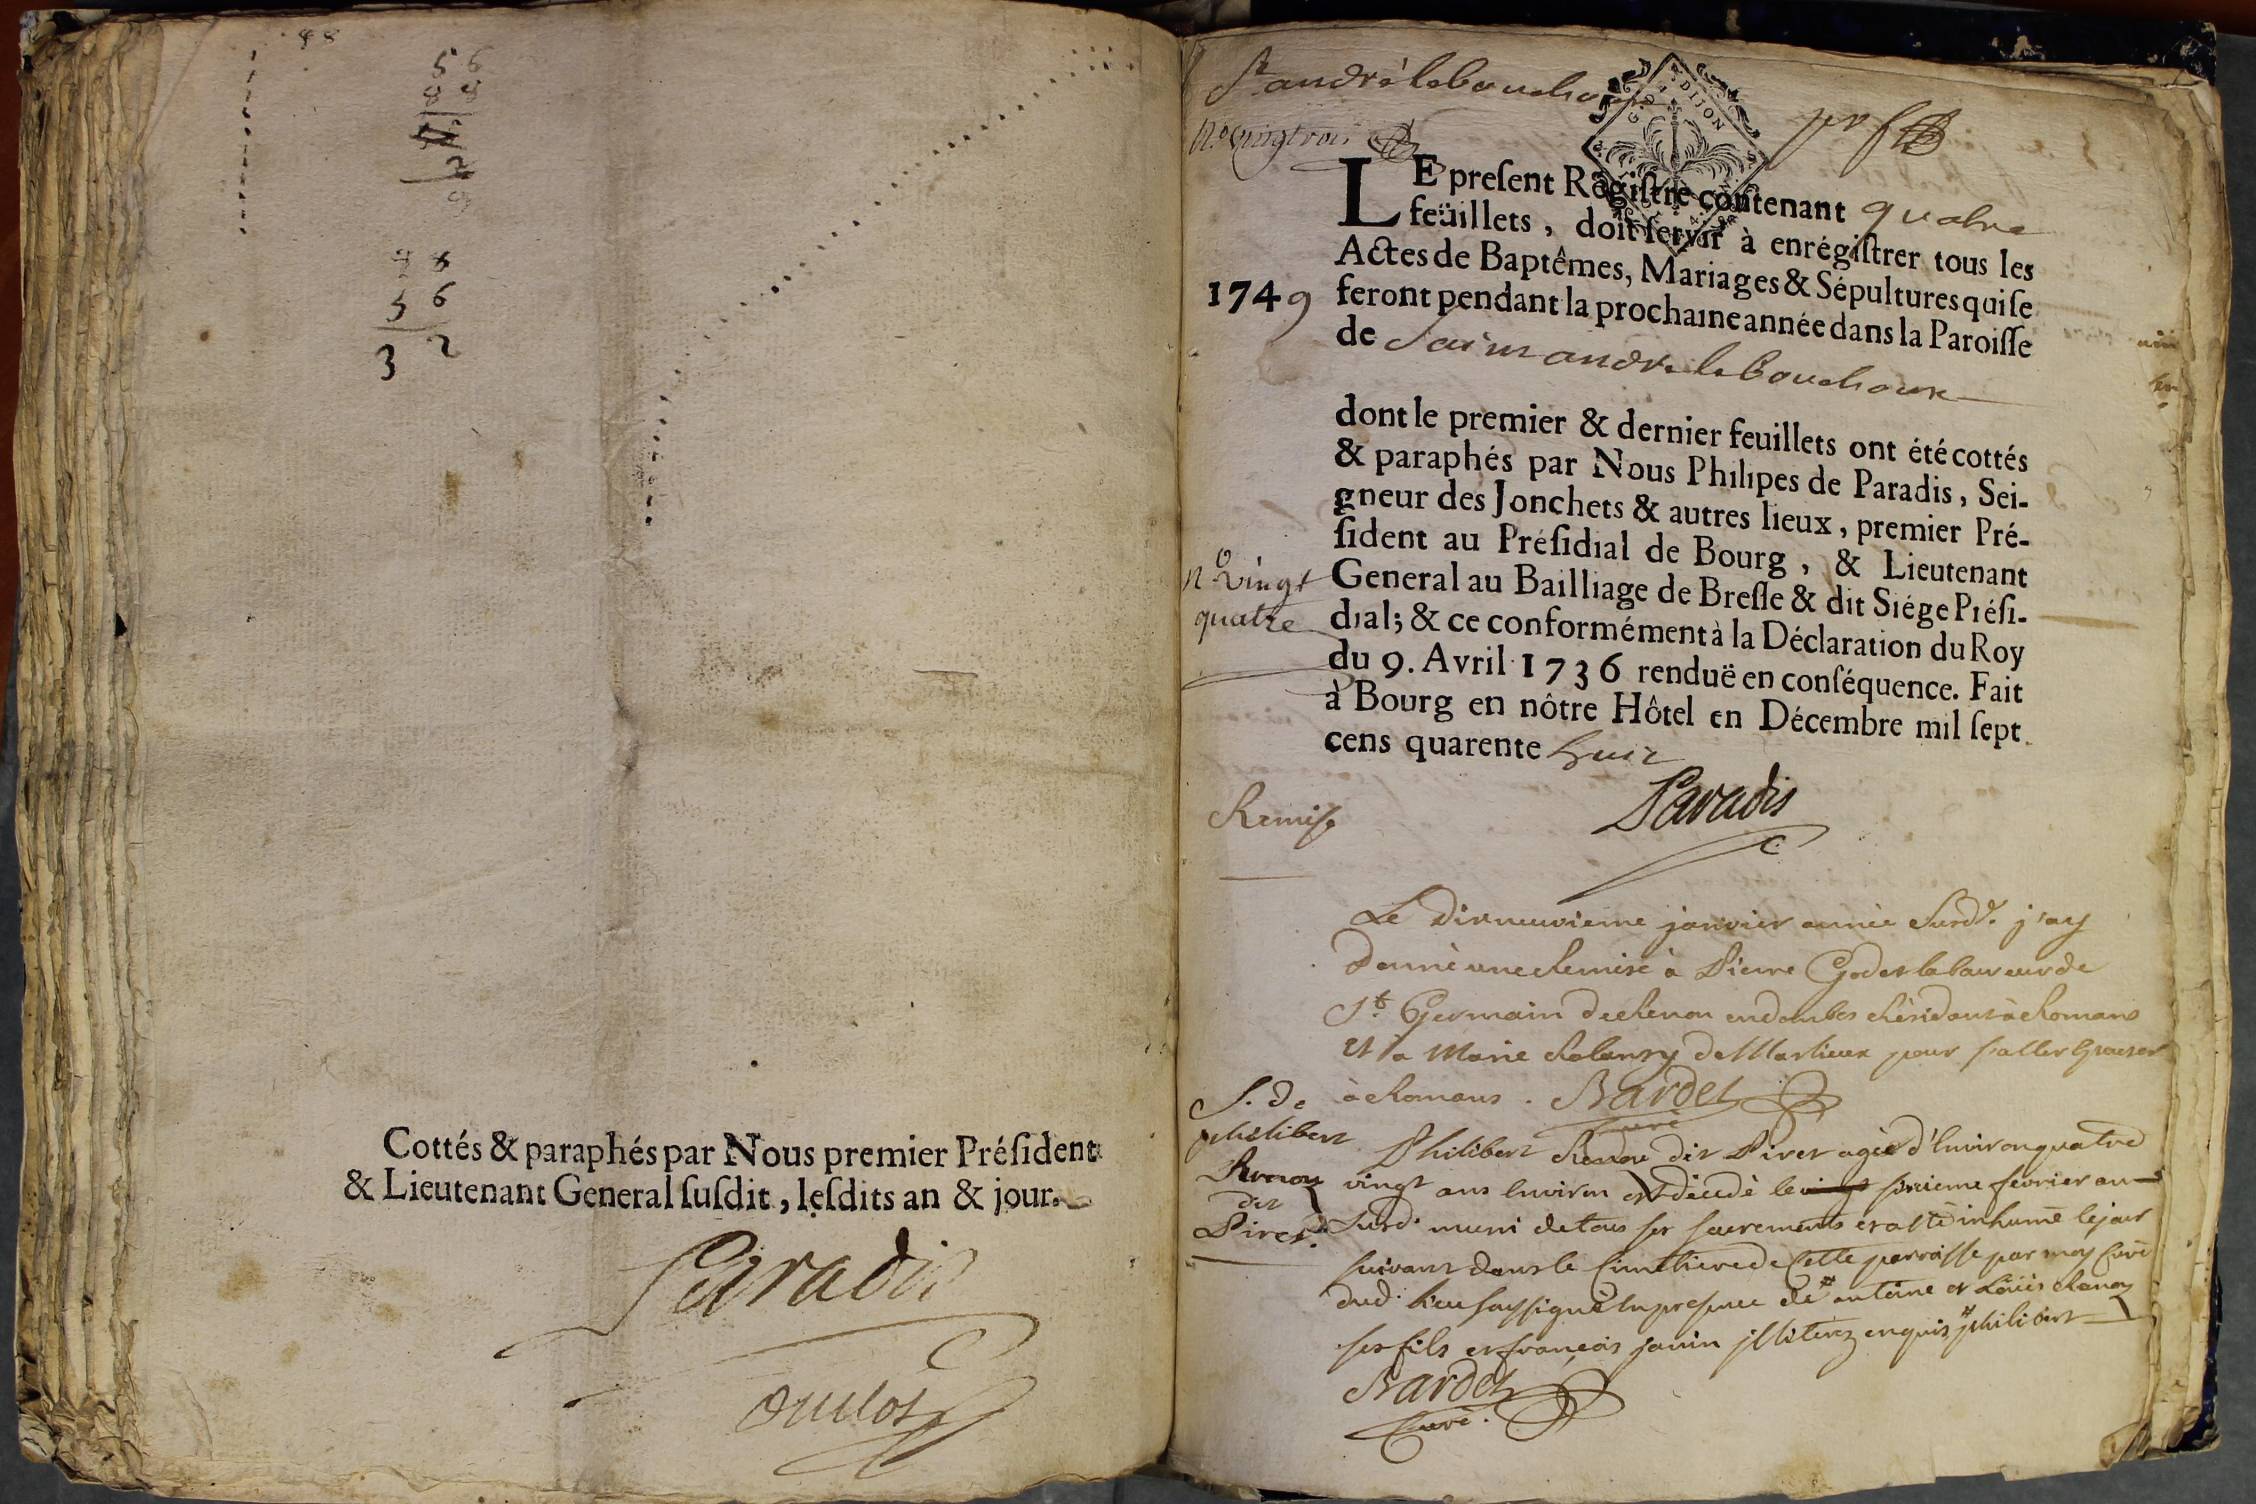 48
56
88
2
9
98
56
32
Cottés & paraphés par Nous premier Préſident
& Lieutenant General ſuſdit, leſdits an & jour.
Paradis
St andré le bouchoux
No vingt trois
G. DIJON
LE preſent Régiſtre contenant quatre
feüillets, doit ſervir à enrégiſtrer tous les
Actes de Baptêmes, Mariages & Sépultures qui ſe
1749 feront pendant la prochaine année dans la Paroiſſe
de Saint andre le bouchoux
dont le premier & dernier feuillets ont été cottés
& paraphés par Nous Philipes de Paradis, Sei-
gneur des Jonchets & autres lieux, premier Pré-
ſident au Préſidial de Bourg, & Lieutenant
No vingt General au Bailliage de Breſſe & dit Siége Préſi-
quatre dial; & ce conformément à la Déclaration du Roy
du 9. Avril 1736 renduë en conſéquence. Fait
à Bourg en nôtre Hôtel en Décembre mil ſept
cens quarente huit
Paradis
Remise
Le dixneuvieme janvier année Susd. j'ay
donné une Remise à Pierre Godet laboureur de
St. Germain de Renon en dombes Résidant à Romans
et a Marie de Marlieux pour s'aller
à Romans. Bardet
curé
S. de
philibert
Renoy
dit
Piret.
Philibert Renoy dit Piret agé d'Environ quatre
vingt ans Environ est décédé le sixieme fevrier an
susd. muni de tous ses sacrements et a été inhumé le jour
suivant dans le Cimetiere de Cette parroisse par moy Curé
dud. lieu soussigné En presence de # antoine et Loüis Renoy
ses fils et françois janin jllitérez enquis # philibert
Bardet
Curé.